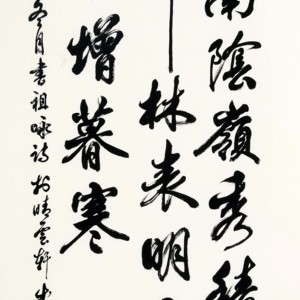 南陰嶺秀積
林表明
增暮寒
冬月書祖詠詩於晴雲軒